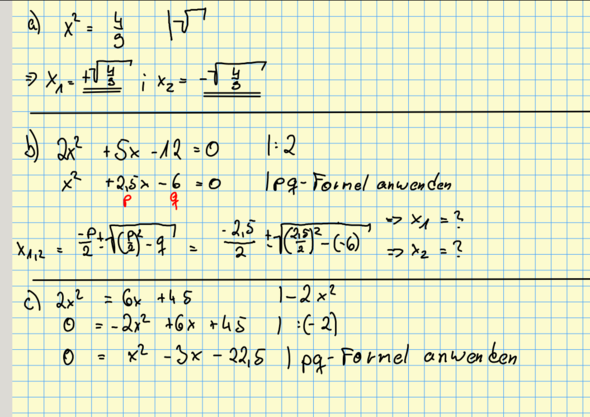 a) x² = 4/9 |√
⇒ x₁ = +√(4/9) ; x₂ = -√(4/9)
b) 2x² +5x -12 = 0 |:2
x² +2,5x -6 = 0 |pq-Formel anwenden
p q
x₁,₂ = -p/2 ± √((p/2)² - q) = -2,5/2 ± √((2,5/2)² - (-6)) ⇒ x₁ = ?
⇒ x₂ = ?
c) 2x² = 6x +45 |-2x²
0 = -2x² +6x +45 | :(-2)
0 = x² -3x -22,5 | pq-Formel anwenden